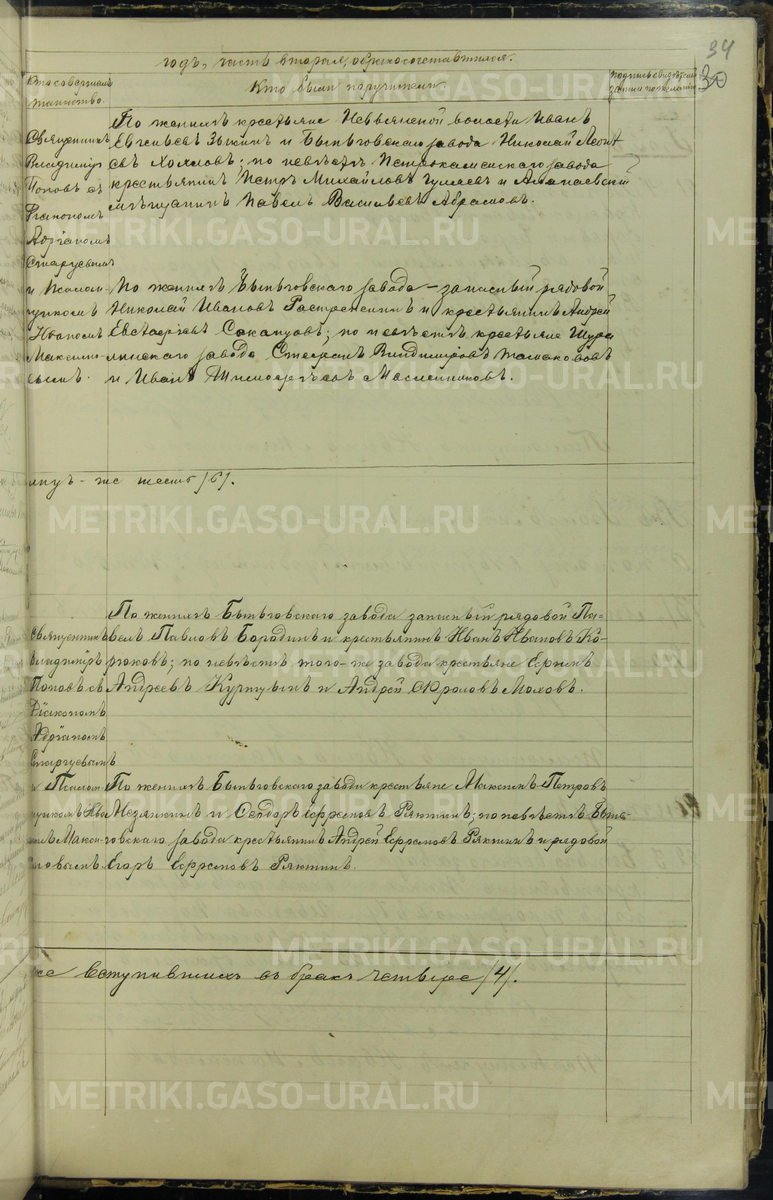 34
годъ, часть вторая, о бракосочетавшихся.
Кто совершалъ таинство.
Кто были поручители.
Подпись свидѣтелей записи по желанію
30
Священникъ
Владимиръ
Поповъ съ
Діакономъ
Адріаномъ
Старцевымъ
и Псалом-
щикомъ
Иваномъ
Максимо-
вымъ.
По женихѣ крестьяне Невьянской волости Иванъ
Евгеньевъ Зыкинъ и Быньговскаго завода Николай Леонт
евъ Холмовъ; по невѣстѣ Петрокаменскаго завода
крестьянинъ Петръ Михайловъ Гуляевъ и Алапаевскій
мѣщанинъ Павелъ Васильевъ Абрамовъ.
По женихѣ Быньговскаго завода – запасный рядовой
Николай Ивановъ и крестьянинъ Андрей
Евстафіевъ; по невѣстѣ крестьяне Шура
линскаго завода Стефанъ Владимировъ
и Иванъ Тимофеевъ Масленниковъ.
же шесть /6/.
Священникъ
Владимиръ
Поповъ съ
Діакономъ
Адріаномъ
Старцевымъ
и Псалом
щикомъ Ива
номъ Макси
мовымъ.
По женихѣ Быньговскаго завода запасный рядовой Па-
велъ Павловъ Бородинъ и крестьянинъ Иванъ Ивановъ Ко-
рюковъ; по невѣстѣ того-же завода крестьяне
Андреевъ и Андрей Фроловъ Моховъ.
По женихѣ Быньговскаго завода крестьяне Максимъ Петровъ
и Ефремовъ; по невѣстѣ Бынь-
говскаго завода крестьянинъ Андрей Ефремовъ и рядовой
Егоръ Ефремовъ
же вступившихъ въ бракъ четверо /4/.
METRIKI.GASO-URAL.RU